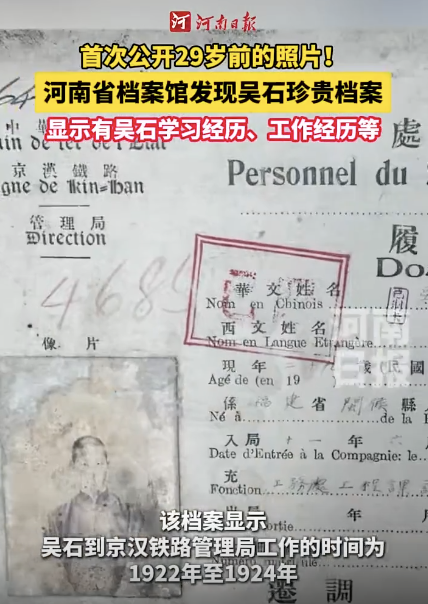 河南日报
首次公开29岁前的照片！
河南省档案馆发现吴石珍贵档案
显示有吴石学习经历、工作经历等
處
京漢鐵路
gne de Kin-Han
Personnel du
管理局
Direction
履
Do
468
華文姓名
Nom en Chinois
西文姓名
Nom en Langue Etrangère
像片
現年 歲
Agé de (en 19
係福建省閩侯縣
Né à de la
入局十一年六
Date d'Entrée à la Compagnie: le
充
Fonction 工務處工程課
年 月
Sortie
河南日报
该档案显示
吴石到京汉铁路管理局工作的时间为
1922年至1924年
還調